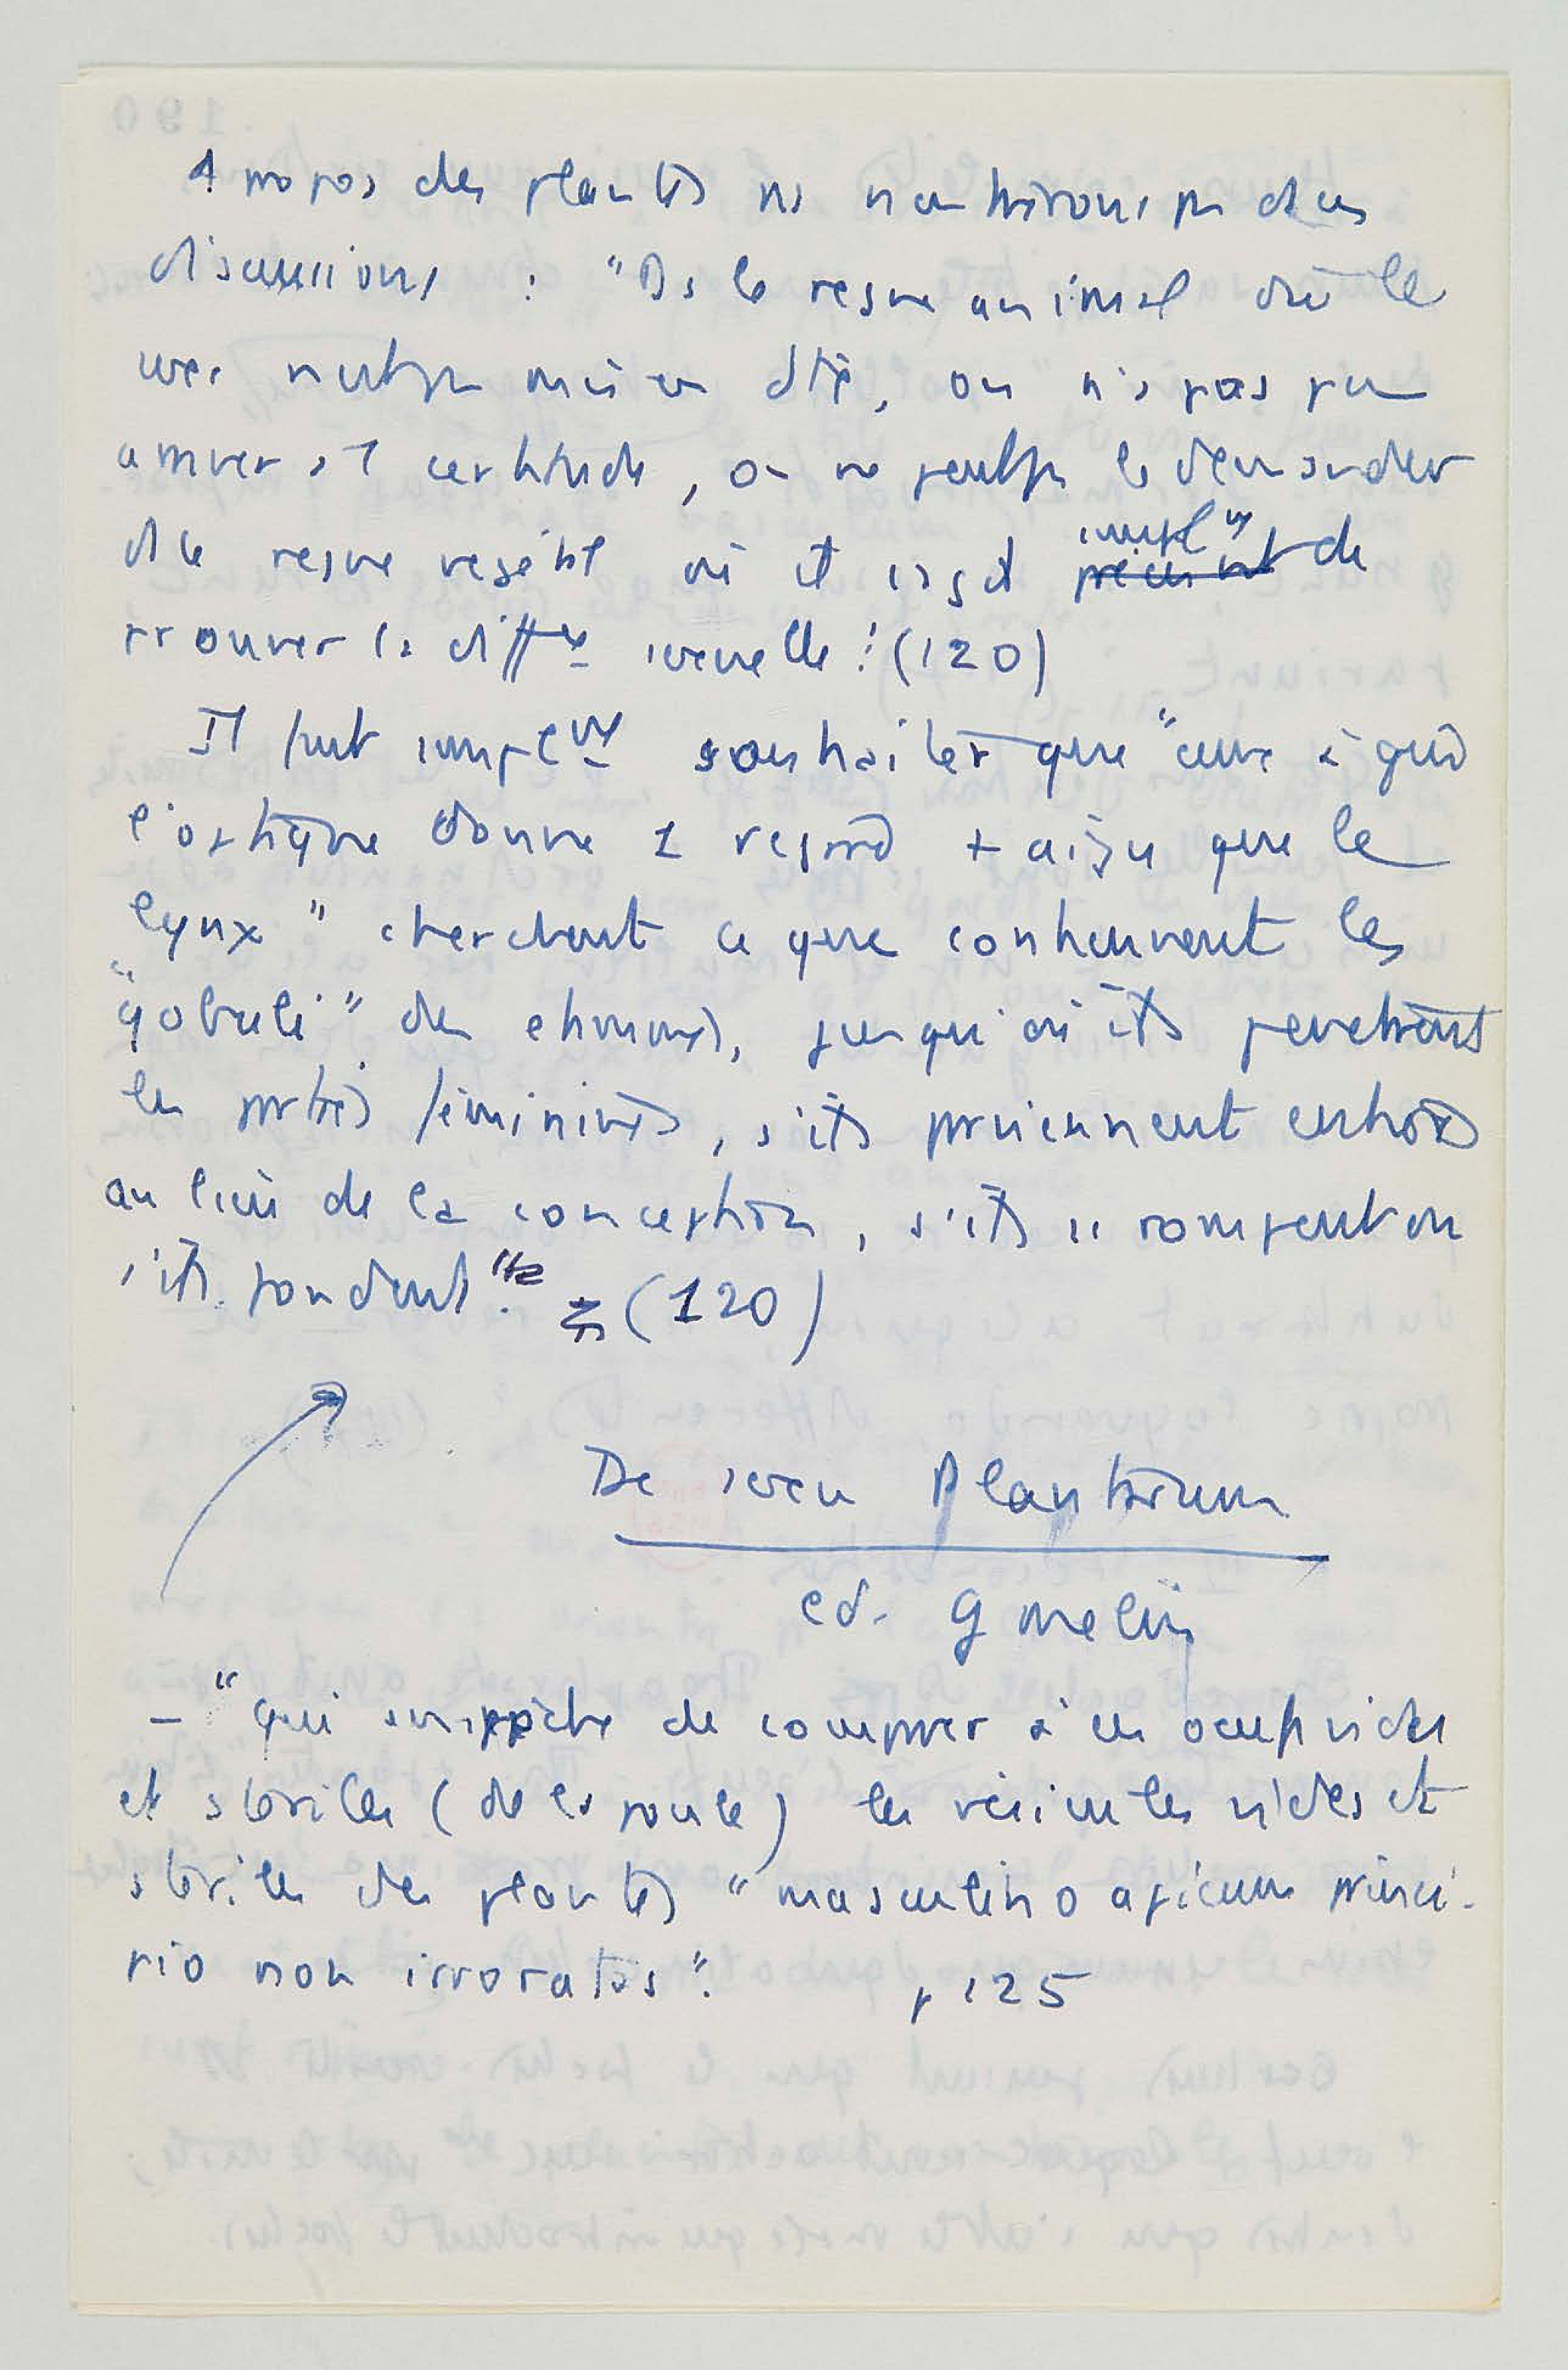 A propos des plantes ns n'entrerons pas ds ces
discussions : "Ds le regne animal où le
sexe n'est pas mis en dte, on n'a pas pu
arriver à 1 certitude, on ne peut pas le demander
ds le regne végétal où il s'agit simplt de
trouver la diffce sexuelle." (120)
Il faut simplt souhaiter que "ceux à qui
l'optique donne 1 regard + aigu que le
lynx" cherchent ce que contiennent les
"globuli" des etamines, jusqu'où ils penetrent
les parties féminines, s'ils parviennent entiers
au lieu de la conception, s'ils se rompent ou
s'ils fondent". (120)
De sexu Plantarum
ed. Gmelin
- "qui empêche de comparer à ces oeufs vides
et steriles (de la poule) les vesicules vides et
steriles des plantes "masculino apicum princi-
pio non irroratas". p 125